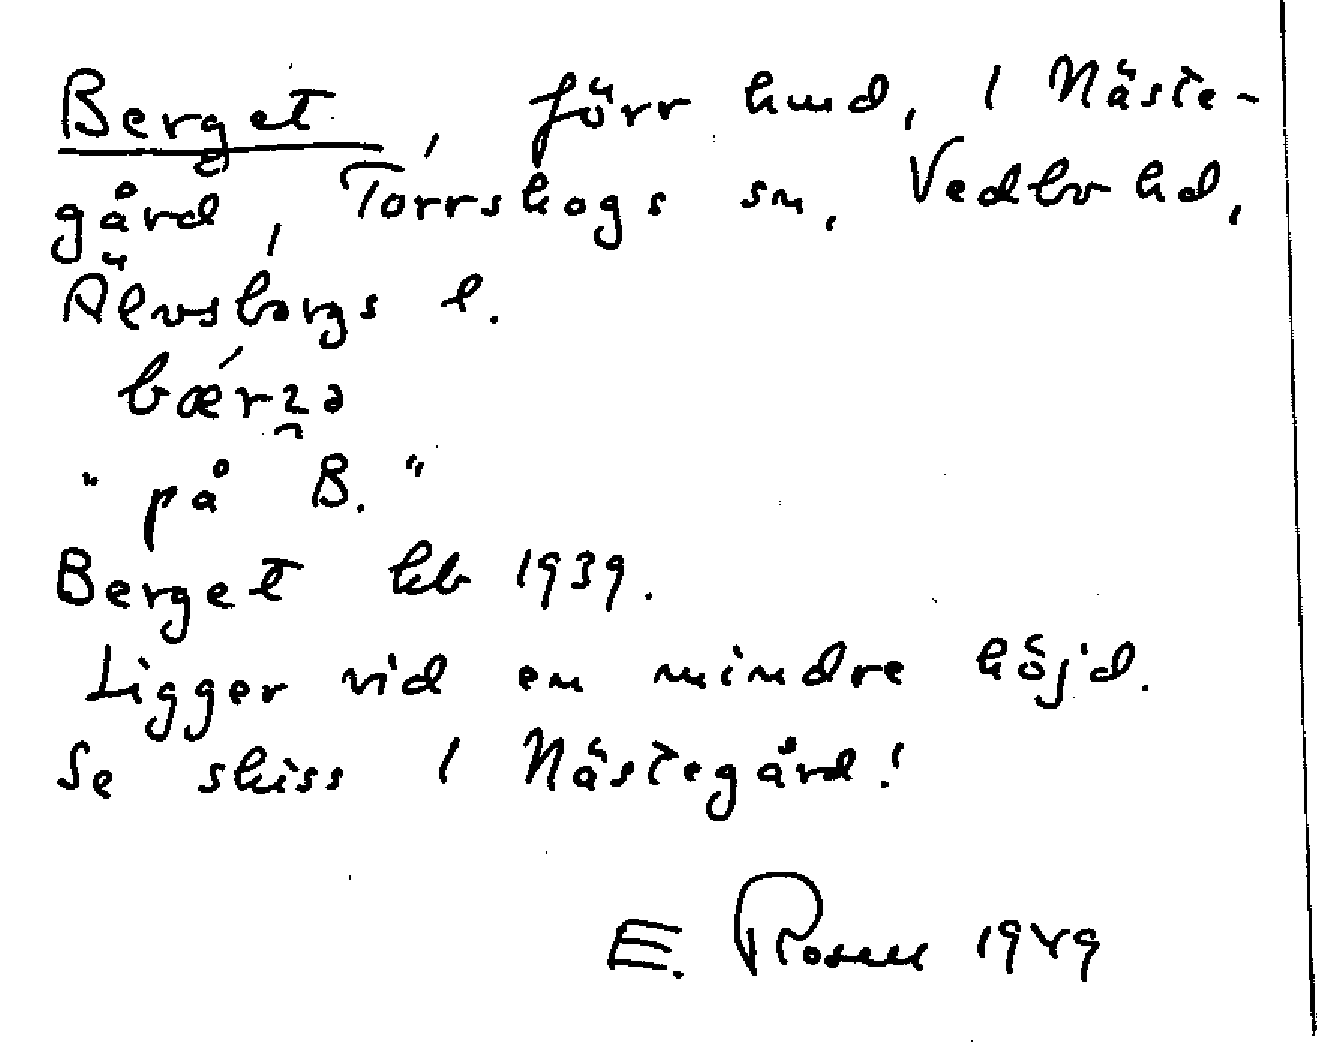 Berget, förr hmd, 1 Näste-
gård, Torrskogs sn, Vedbo hd,
Älvsborgs l.
"på B."
Berget kb 1939.
Ligger vid en mindre höjd.
Se skiss 1 Nästegård!
E. Rosell 1949